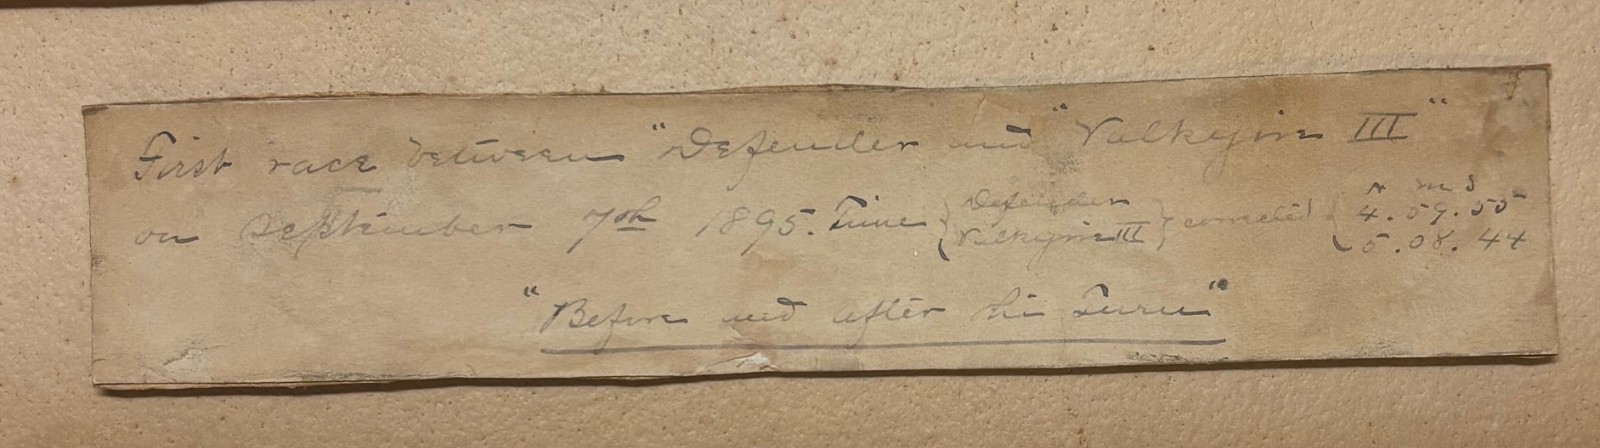 First race between "Defender and "Valkyrie III"
on September 7th 1895. Time { Defender Valkyrie III } corrected { H m S 4.59.55 5.08.44
"Before and after the Turn"